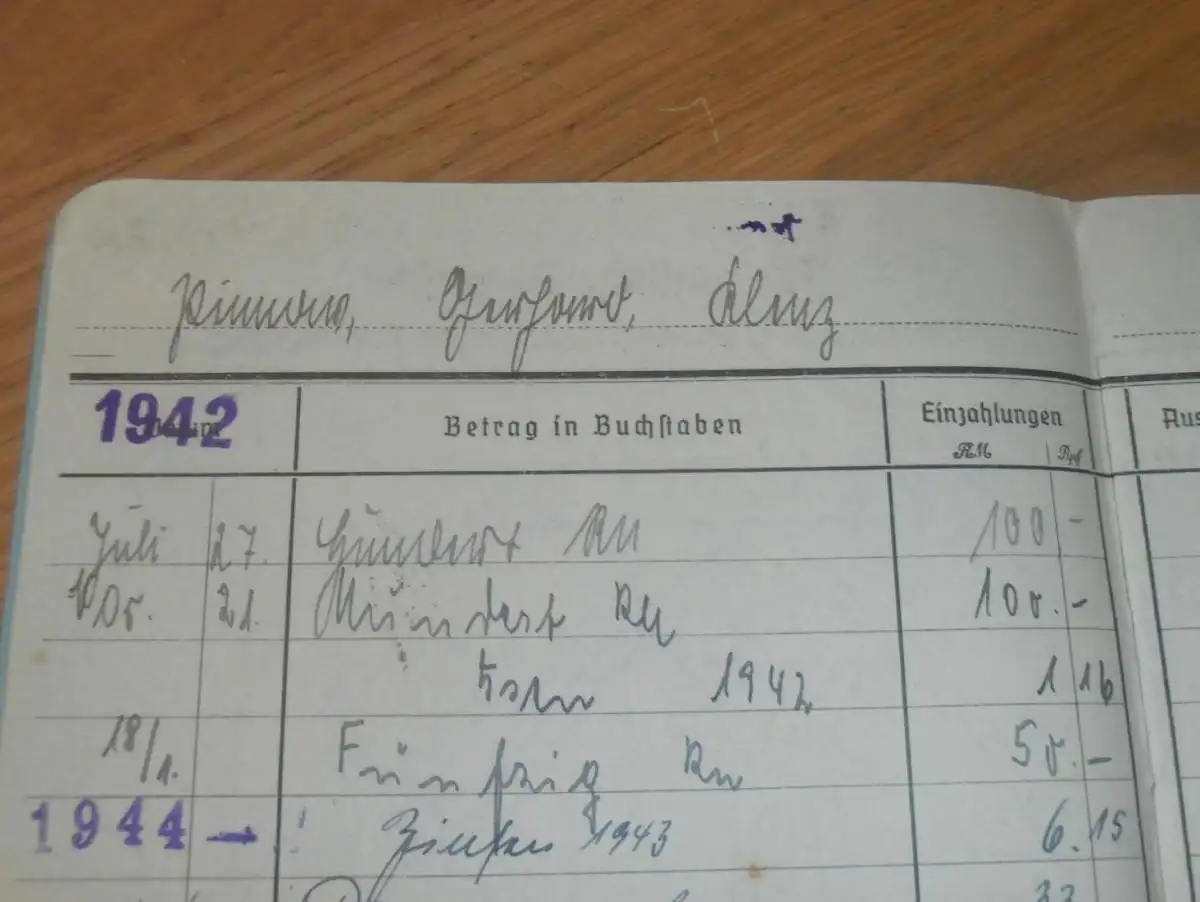 Pinnow, Gerhard, Klenz
1942
Betrag in Buchstaben
Einzahlungen
Aus
RM Rpf
Juli 27. Hundert RM 100 -
Nov. 21. Hundert RM 100. -
1942 1 16
18/1. Fünfzig RM 50. -
1944 → Zinsen 1943 6. 15
33